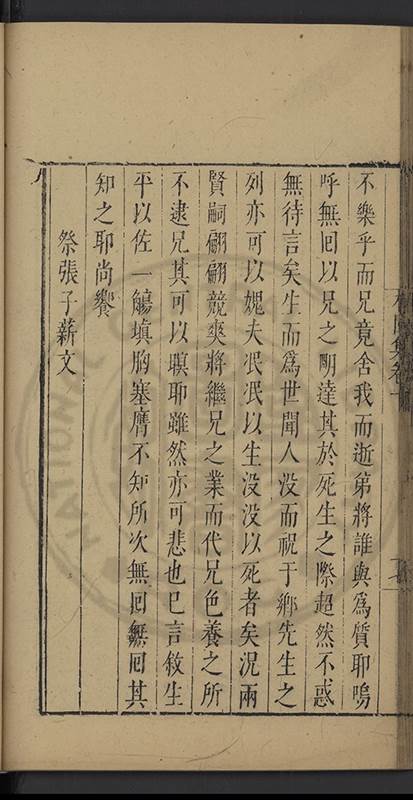 不樂乎而兄竟舍我而逝第將誰與為質耶嗚
呼無囘以兄之明達其於死生之際超然不惑
無待言矣生而爲世聞人没而祝于鄉先生之
列亦可以媿夫泯泯以生没没以死者矣况兩
賢嗣翩翩競爽將繼兄之業而代兄色養之所
不逮兄其可以瞑耶雖然亦可悲也已言敘生
平以佐一觴塡胸塞膺不知所次無囘無囘其
知之耶尚饗
祭張子薪文